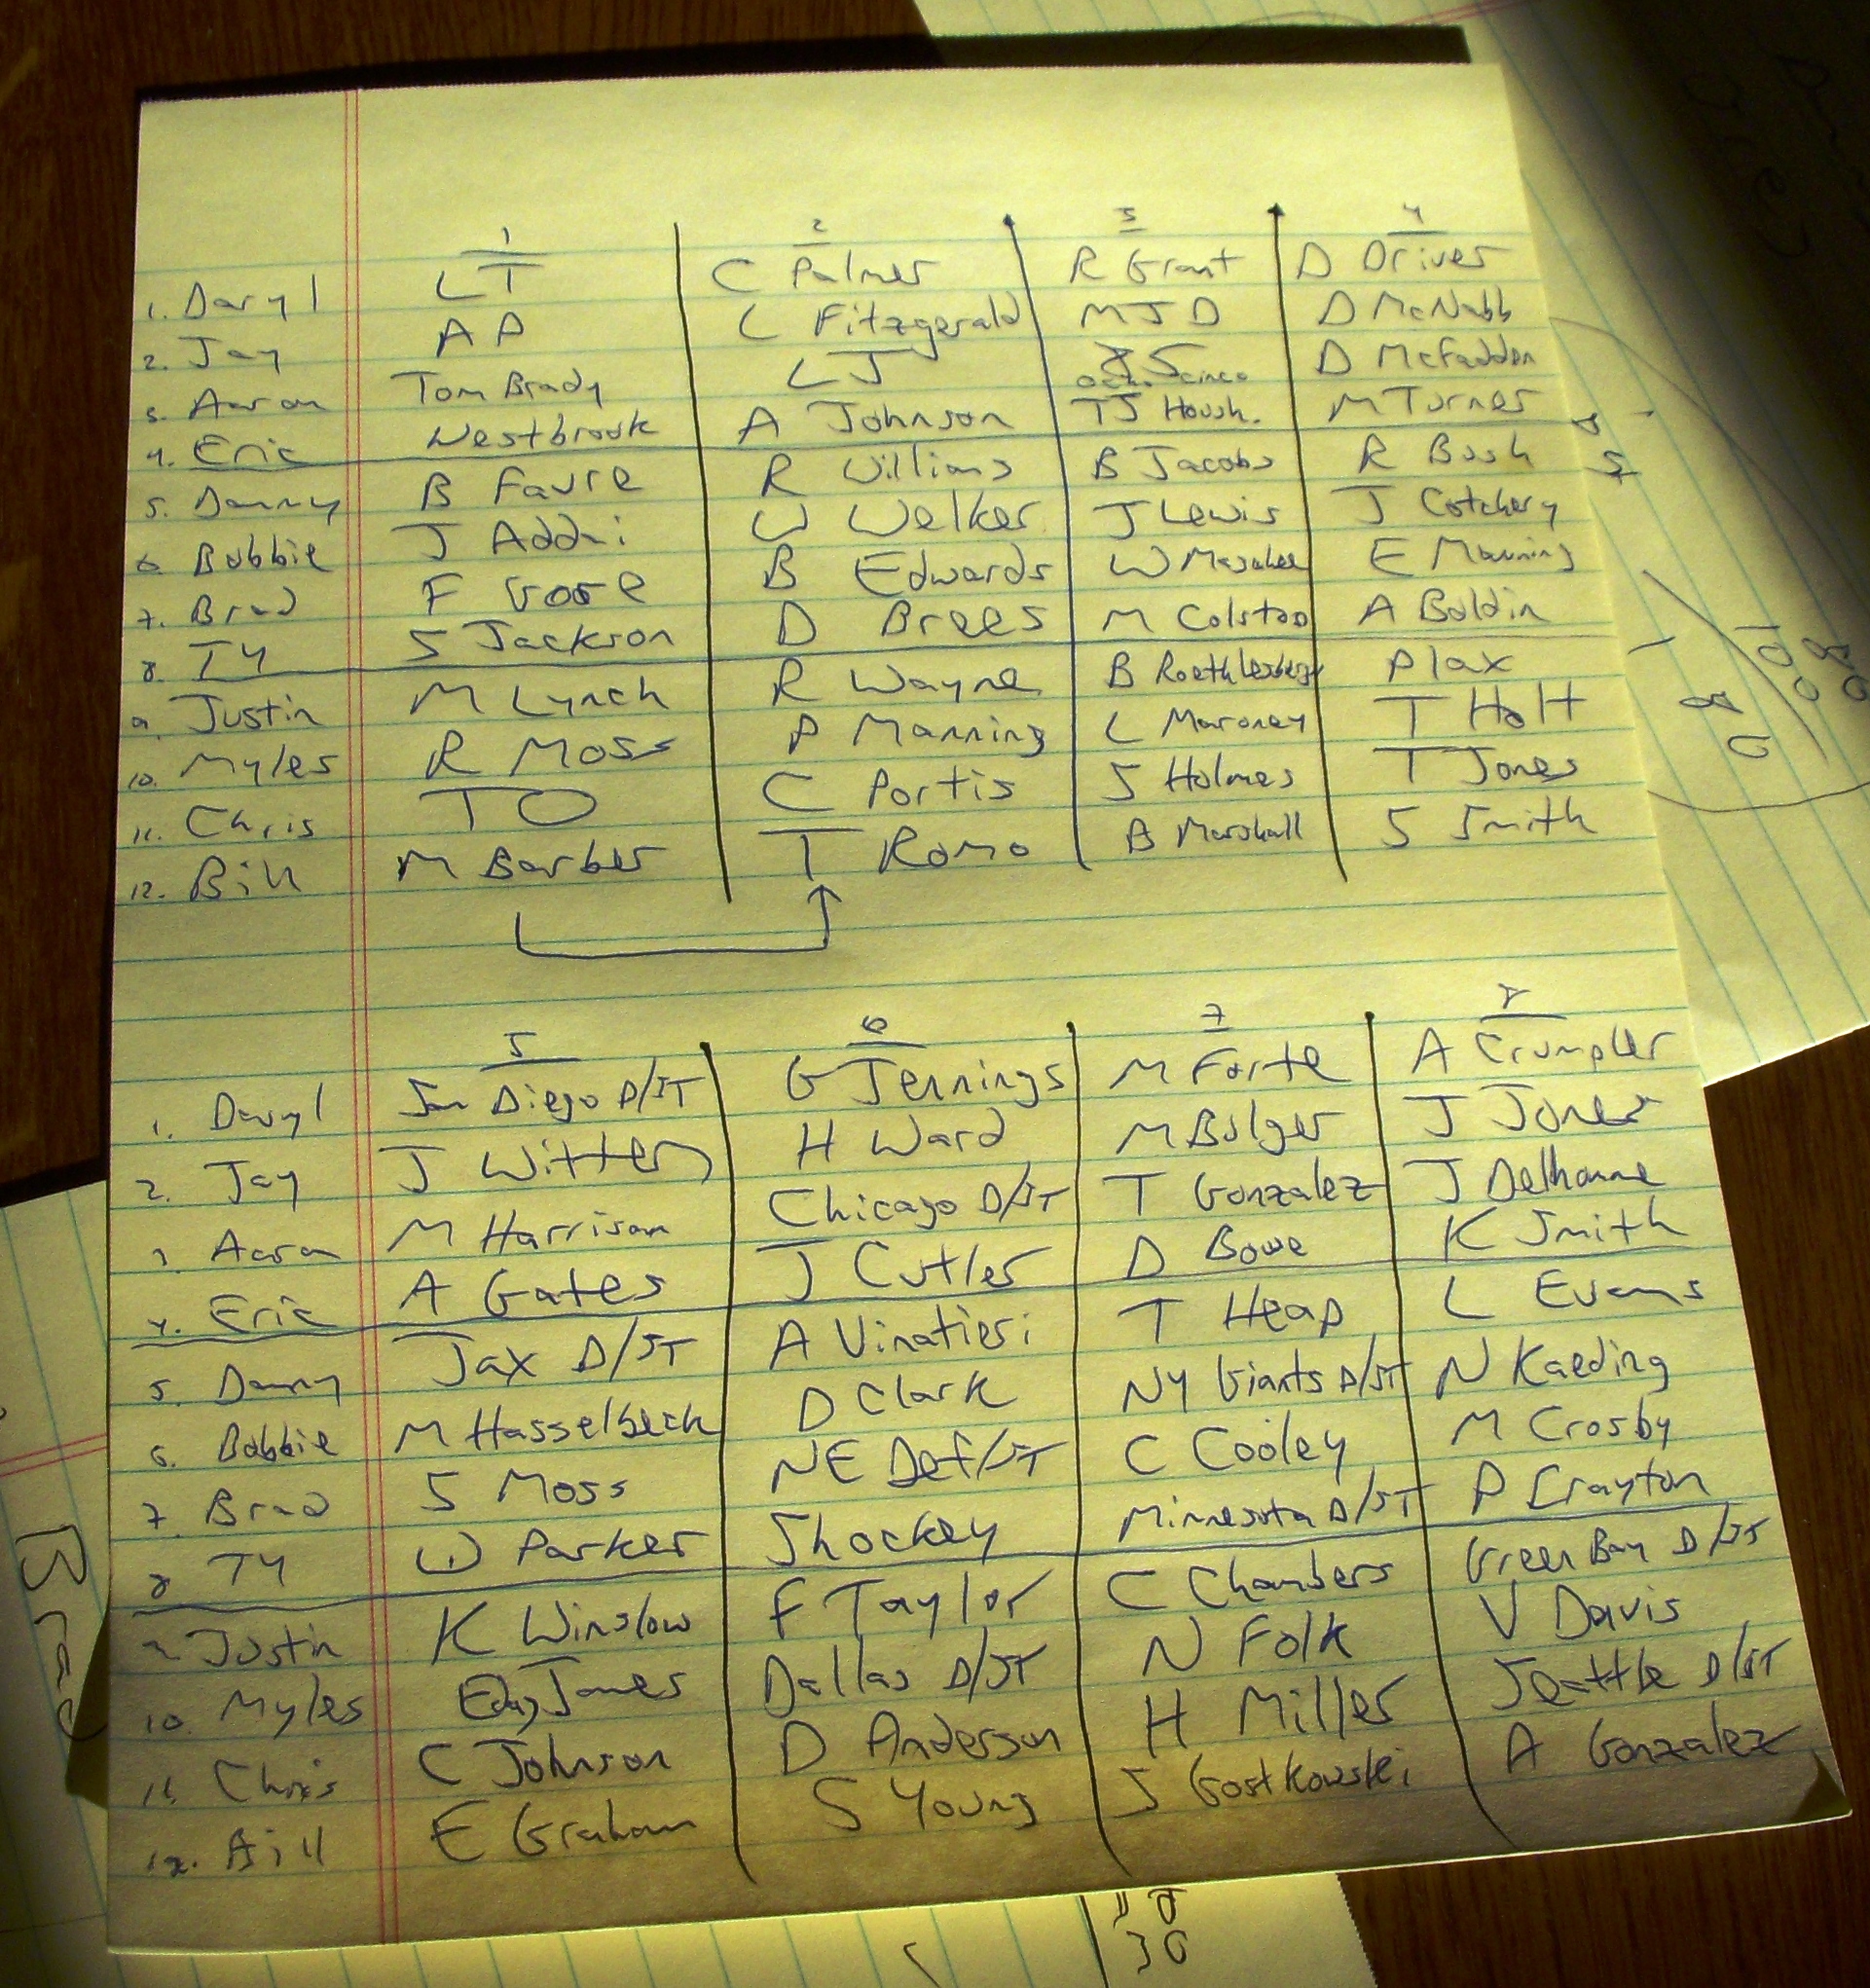 1 2 3 4
1. Daryl LT C Palmer R Grant D Driver
2. Jay AP L Fitzgerald MJD D McNabb
3. Aaron Tom Brady LJ 85 Ocho cinco D McFadden
4. Eric Westbrook A Johnson TJ Housh. M Turner
5. Danny B Favre R Williams B Jacobs R Bush
6. Bobbie J Addai W Welker J Lewis J Cotchery
7. Brad F Gore B Edwards W McGahee E Manning
8. TY S Jackson D Brees M Colston A Boldin
9. Justin M Lynch R Wayne B Roethlesberger Plax
10. Myles R Moss P Manning L Maroney T Holt
11. Chris TO C Portis S Holmes T Jones
12. Bill M Barber T Romo B Marshall S Smith
5 6 7 8
1. Daryl San Diego D/ST G Jennings M Forte A Crumpler
2. Jay J Witten H Ward M Bulger J Jones
3. Aaron M Harrison Chicago D/ST T Gonzalez J Delhomme
4. Eric A Gates J Cutler D Bowe K Smith
5. Danny Jax D/ST A Vinatieri T Heap L Evans
6. Bobbie M Hasselbeck D Clark NY Giants D/ST N Kaeding
7. Brad S Moss NE Def/ST C Cooley M Crosby
8 TY W Parker Shockey Minnesota D/ST P Crayton
9. Justin K Winslow F Taylor C Chambers Green Bay D/ST
10. Myles James Dallas D/ST N Folk V Davis
11. Chris C Johnson D Anderson H Miller Seattle D/ST
12. Bill E Graham S Young S Gostkowski A Gonzalez
Brad